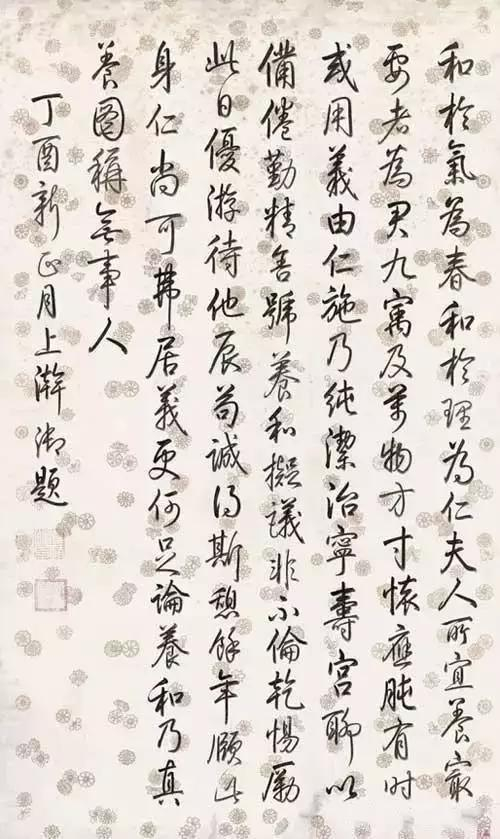 和於氣為春和於理為仁夫人所宜養最
要者為君九寓及萬物方寸懷應肫有時
或用義由仁施乃純潔治寧壽宮聊以
備倦勤精舍號養和擬議非不倫乾惕勵
此日優游待他辰苟誠得斯憩餘年頤此
身仁尚可弗居義更何足論養和乃真
養圖稱無事人
丁酉新正月上澣御題